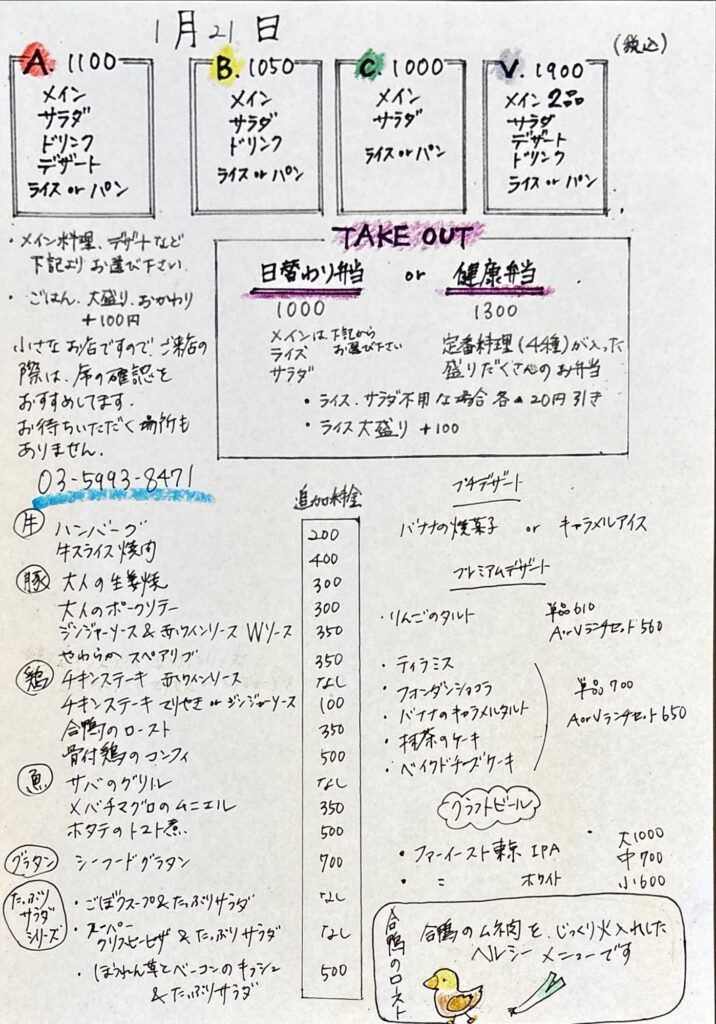 1月21日
(税込)
A. 1100
メイン
サラダ
ドリンク
デザート
ライス or パン
B. 1050
メイン
サラダ
ドリンク
ライス or パン
C. 1000
メイン
サラダ
ライス or パン
V. 1900
メイン 2品
サラダ
デザート
ドリンク
ライス or パン
・メイン料理、デザートなど
下記よりお選び下さい
・ごはん、大盛り、おかわり
+100円
小さなお店ですので、ご来店の
際は、席の確認を
おすすめしてます.
お待ちいただく場所も
ありません.
03-5993-8471
TAKE OUT
日替わり弁当 or 健康弁当
1000
メインは、下記から
お選び下さい
ライス
サラダ
1300
定番料理(4種)が入った
盛りだくさんのお弁当
・ライス、サラダ不用な場合 各▲20円引き
・ライス大盛り +100
追加料金
牛
ハンバーグ 200
牛スライス焼肉 400
豚
大人の生姜焼 300
大人のポークソテー 300
ジンジャーソース&赤ワインソース Wソース 350
やわらか スペアリブ 350
鶏
チキンステーキ 赤ワインソース なし
チキンステーキ てりやき or ジンジャーソース 100
合鴨のロースト 350
骨付鶏のコンフィ 500
魚
サバのグリル なし
メバチマグロのムニエル 350
ホタテのトマト煮 500
グラタン
シーフードグラタン 700
たっぷり
サラダ
シリーズ
・ごぼうスープ&たっぷりサラダ なし
・スーパー
クリスピーピザ & たっぷりサラダ なし
・ほうれん草とベーコンのキッシュ
&たっぷりサラダ 500
プチデザート
バナナの焼菓子 or キャラメルアイス
プレミアムデザート
・りんごのタルト 単品610
AorVランチセット560
・ティラミス
・フォンダンショコラ
・バナナのキャラメルタルト
・抹茶のケーキ
・ベイクドチーズケーキ
単品700
AorVランチセット650
クラフトビール
・ファーイースト東京 IPA
・ 〃 ホワイト
・大1000
中700
小600
合鴨のロースト
合鴨のムネ肉を、じっくり火入れした
ヘルシーメニューです